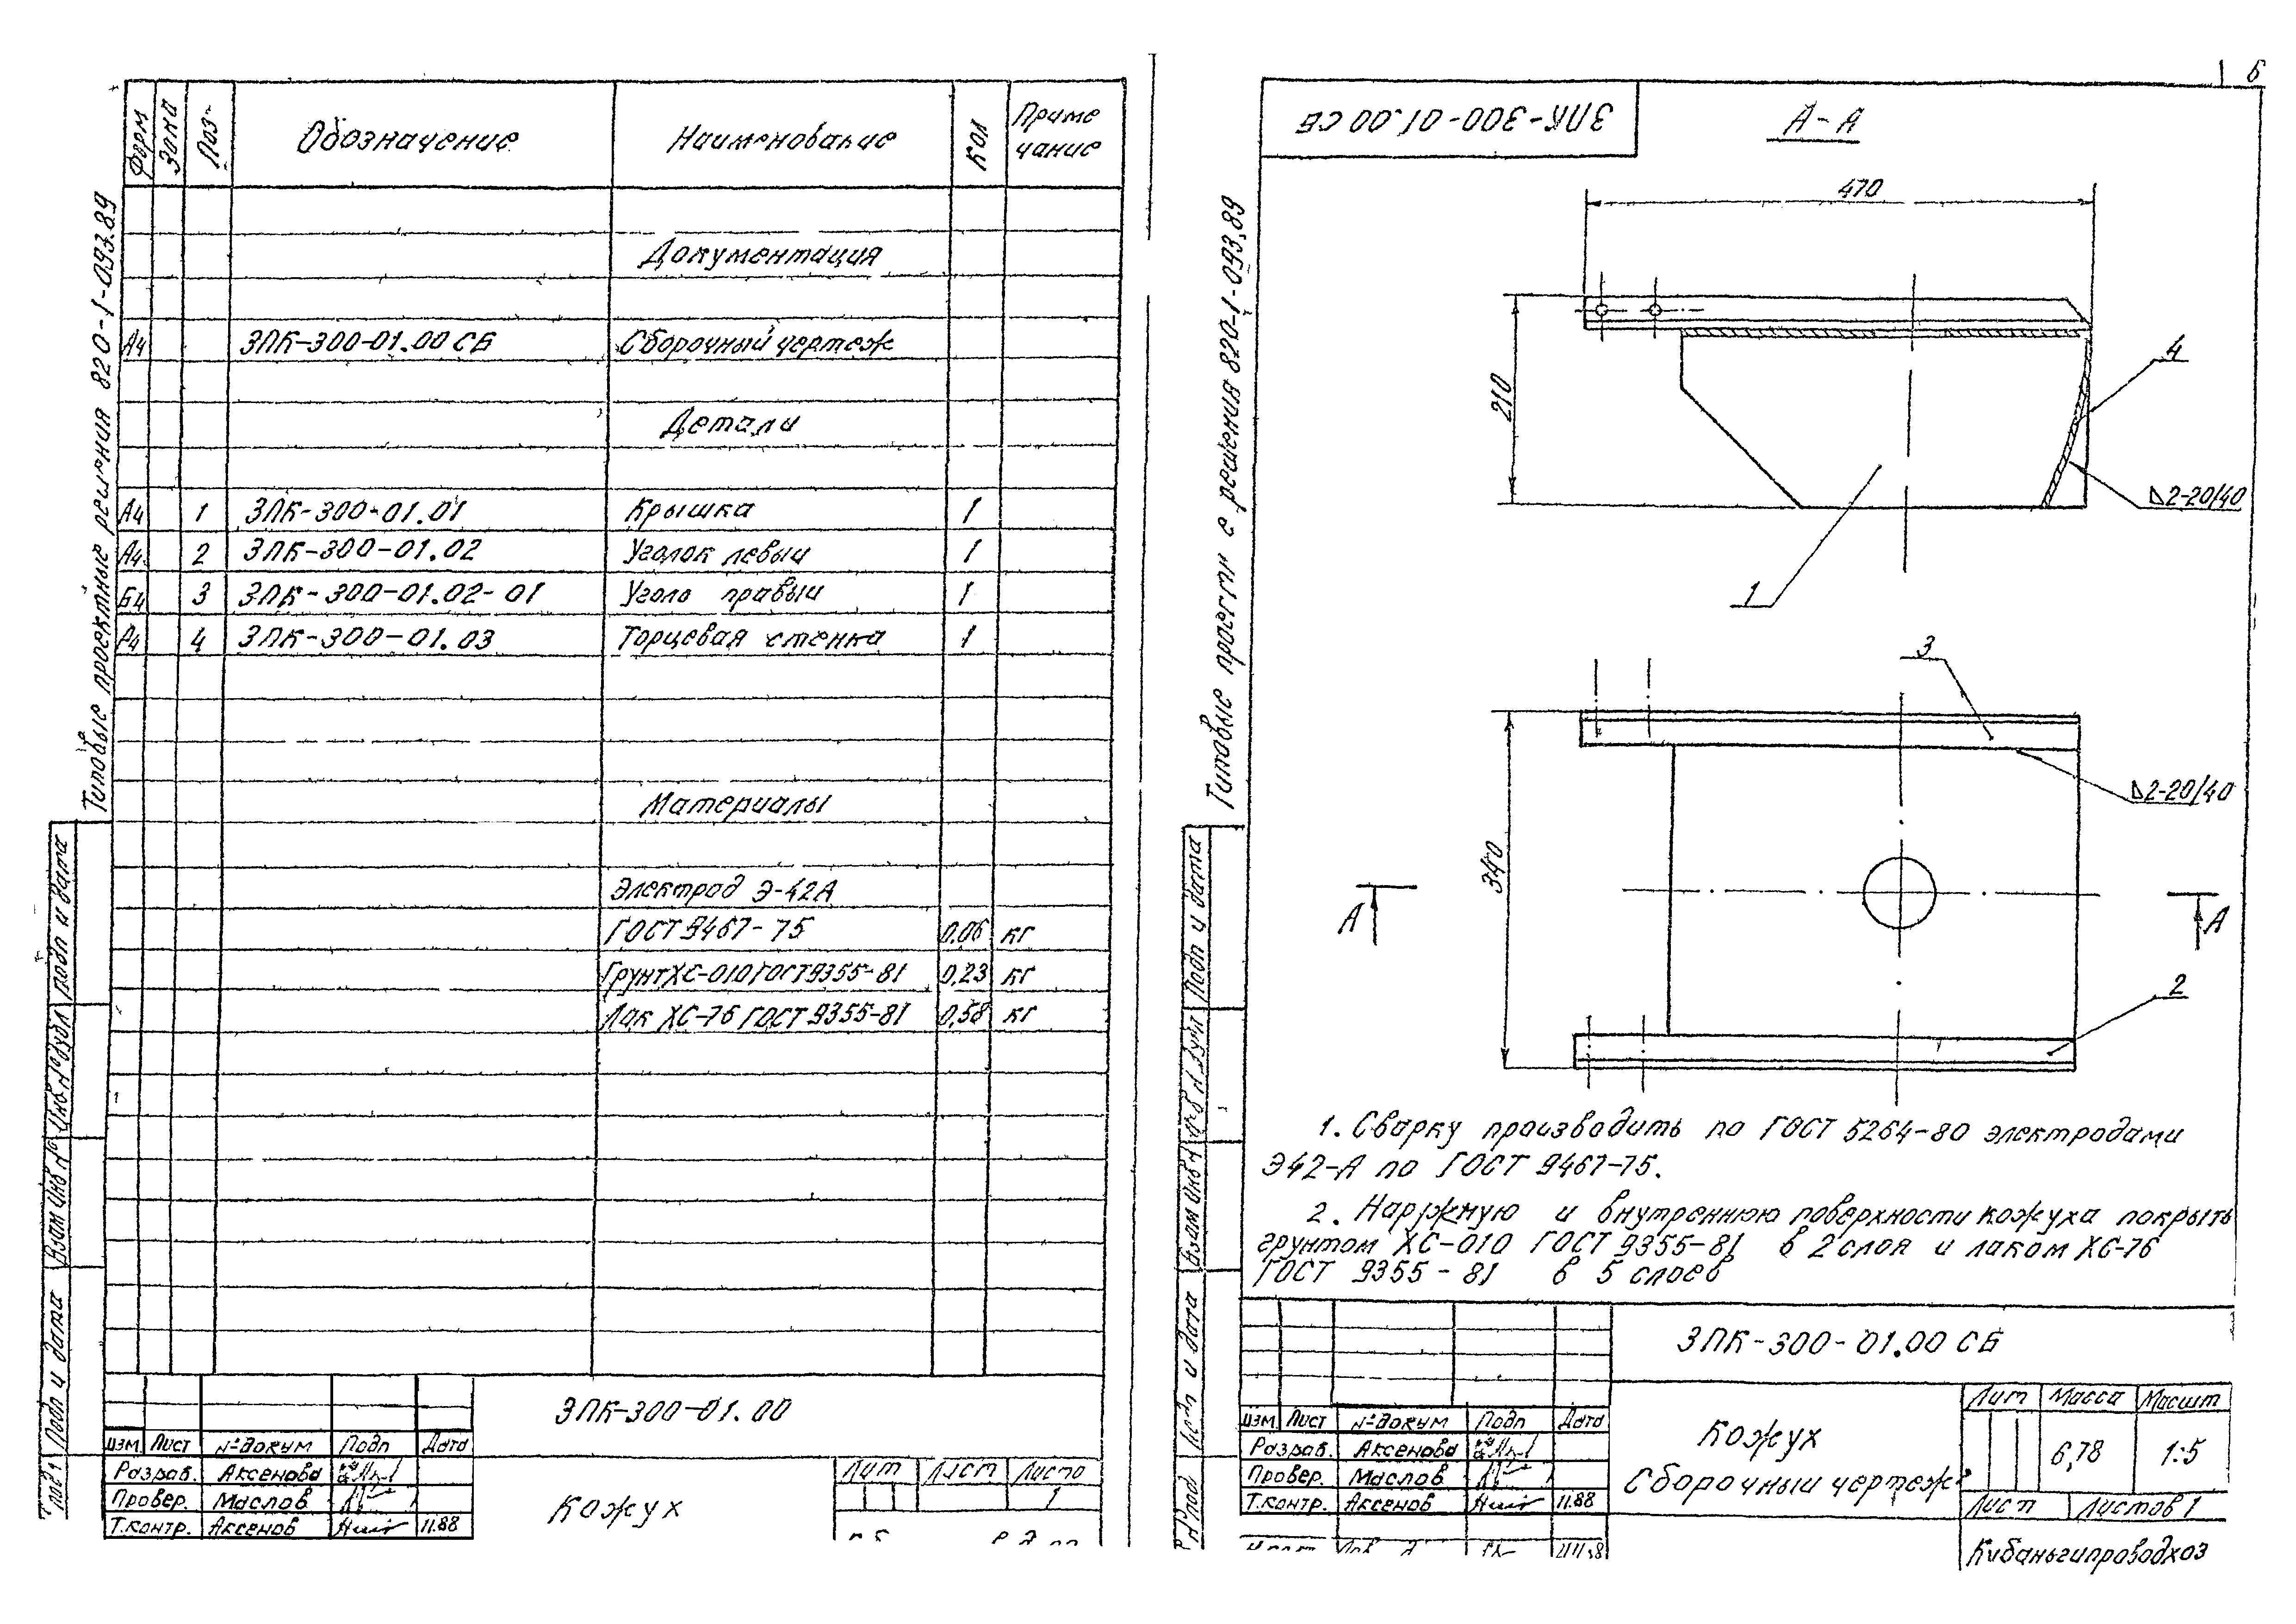 Форм Зона Поз. Обозначение Наименование Кол Приме чание
Документация
А4 ЗПК-300-01.00 СБ Сборочный чертеж
Детали
А4 1 ЗПК-300-01.01 Крышка 1
А4 2 ЗПК-300-01.02 Уголок левый 1
Б4 3 ЗПК-300-01.02-01 Уголо правый 1
4 ЗПК-300-01.03 Торцевая стенка 1
Материалы
Электрод Э-42А
ГОСТ 9467-75 0.06 кг
Грунт ХС-010 ГОСТ 9355-81 0,23 кг
Лак ХС-76 ГОСТ 9355-81 0,58 кг
Типовые проектные решения 820-1-093.89
Подп и дата
Инв.№ дубл
Взам инв №
Подп и дата
ЗПК-300-01.00
Изм. Лист № докум Подп Дата
Разраб. Аксенова
Провер. Маслов
Т.контр. Аксенов 11.88
Кожух
Лит Лист Листо
1
6
ЗПК-300-01.00 СБ
А-А
470
210
4
2-20/40
1
3
2-20/40
340
А А
2
Типовые проектн е решения 820-1-093.89
Подп и дата
Взам инв №
1. Сварку производить по ГОСТ 5264-80 электродами
Э42-А по ГОСТ 9467-75.
2. Наружную и внутреннюю поверхности кожуха покрыть
грунтом ХС-010 ГОСТ 9355-81 в 2 слоя и лаком ХС-76
ГОСТ 9355-81 в 5 слоев
ЗПК-300-01.00 СБ
Изм. Лист № докум Подп Дата
Разраб. Аксенова
Провер. Маслов
Т.контр. Аксенов 11.88
Кожух
Сборочный чертеж
Лит Масса Масшт
6,78 1:5
Лист Листов 1
Кубаньгипроводхоз